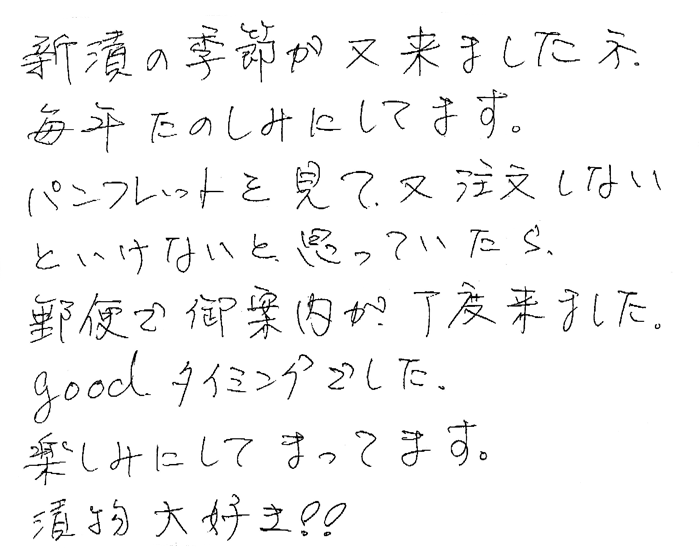 新漬の季節が又来ましたネ.
毎年たのしみにしてます。
パンフレットを見て.又注文しない
といけないと.思っていたら.
郵便で御案内が.丁度来ました。
good.タイミングでした.
楽しみにしてまってます。
漬物大好き!!